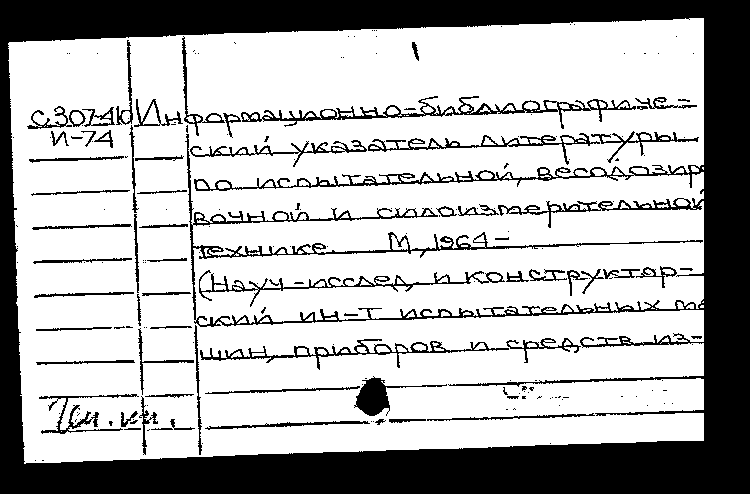 С307410 Информационно-библиографиче-
И-74
ский указатель литературы
по испытательной, весодозиро
вочной и силоизмерительной
технике. М, 1964-
(Науч-исслед. и конструктор-
ский ин-т испытательных ма
шин, приборов и средств из-